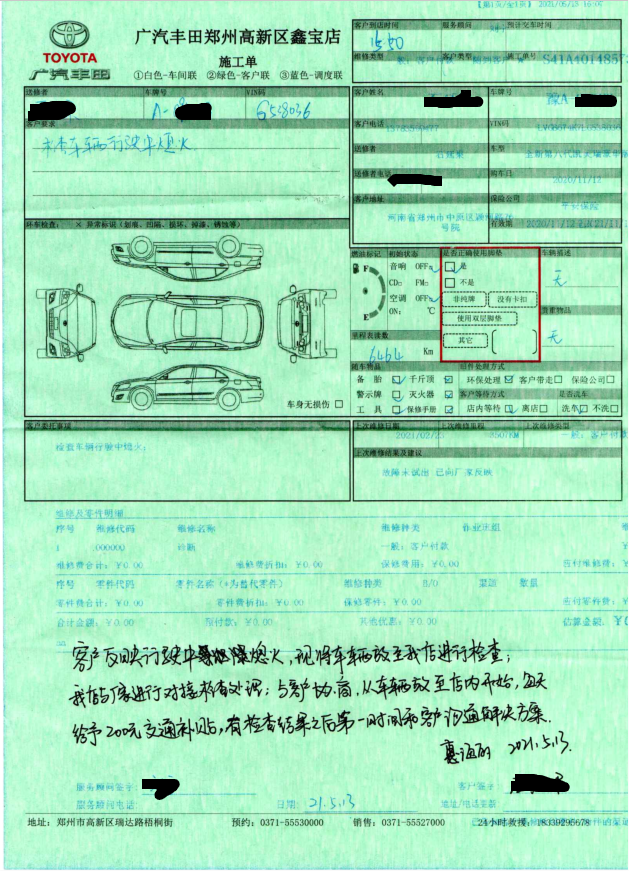 TOYOTA
广汽丰田
广汽丰田郑州高新区鑫宝店
施工单
①白色-车间联 ②绿色-客户联 ③蓝色-调度联
客户到店时间 服务顾问 预计交车时间
1550
维修类型 客户类型 施工单号
送修者 车牌号 VIN码
658036
客户要求
检查车辆行驶中熄火
客户姓名 车牌号
豫A
客户电话 VIN码
送修者 车型
送修者电话 购车日
2020/11/12
客户地址 保险公司
平安保险
河南省郑州市中原区
号院
有效期
环车检查: × 异常标识(划痕、凹陷、损坏、掉漆、锈蚀等)
车身无损伤
燃油标记 初始状态 是否正确使用脚垫 车辆描述
F 音响 OFF 是 无
CD FM 不是
空调 OFF 非纯牌 没有卡扣
E ON: ℃ 使用双层脚垫 贵重物品
其它 无
里程表读数
6464 Km
随车物品 旧件处理方式
备胎 千斤顶 环保处理 客户带走 保险公司
警示牌 灭火器 客户等待方式 是否洗车
工具 保修手册 店内等待 离店 洗车 不洗
客户委托事项
检查车辆行驶中熄火;
上次维修日期 上次维修里程 上次维修类型
一般: 客户付款
上次维修结果及建议
故障未试出 已向厂家反映
维修及零件明细
序号 维修代码 维修名称 维修种类 作业班组
1 000000 诊断 一般: 客户付款
维修费合计: ¥0.00 维修费折扣: ¥0.00 保修费用: ¥0.00 应付维修费:
序号 零件代码 零件名称(*为替代零件) 维修种类 B/O 数量
零件费合计: ¥0.00 零件费折扣: ¥0.00 保修零件: ¥0.00 应付零件费:
合计金额: ¥0.00 预付款: ¥0.00 其他优惠: ¥0.00 估算金额:
客户反映行驶中熄火,现将车辆放至我店进行检查;
我店与厂家进行对接检查处理;与客户协商,从车辆放至店内开始,每天
给予200元交通补贴,有检查结果之后第一时间和客户沟通解决方案.
2021.5.13.
服务顾问签字: 客户签字
服务顾问电话: 日期: 21.5.13 地址/电话更新
地址: 郑州市高新区瑞达路梧桐街 预约: 0371-55530000 销售: 0371-55527000 24小时救援: 18339295678